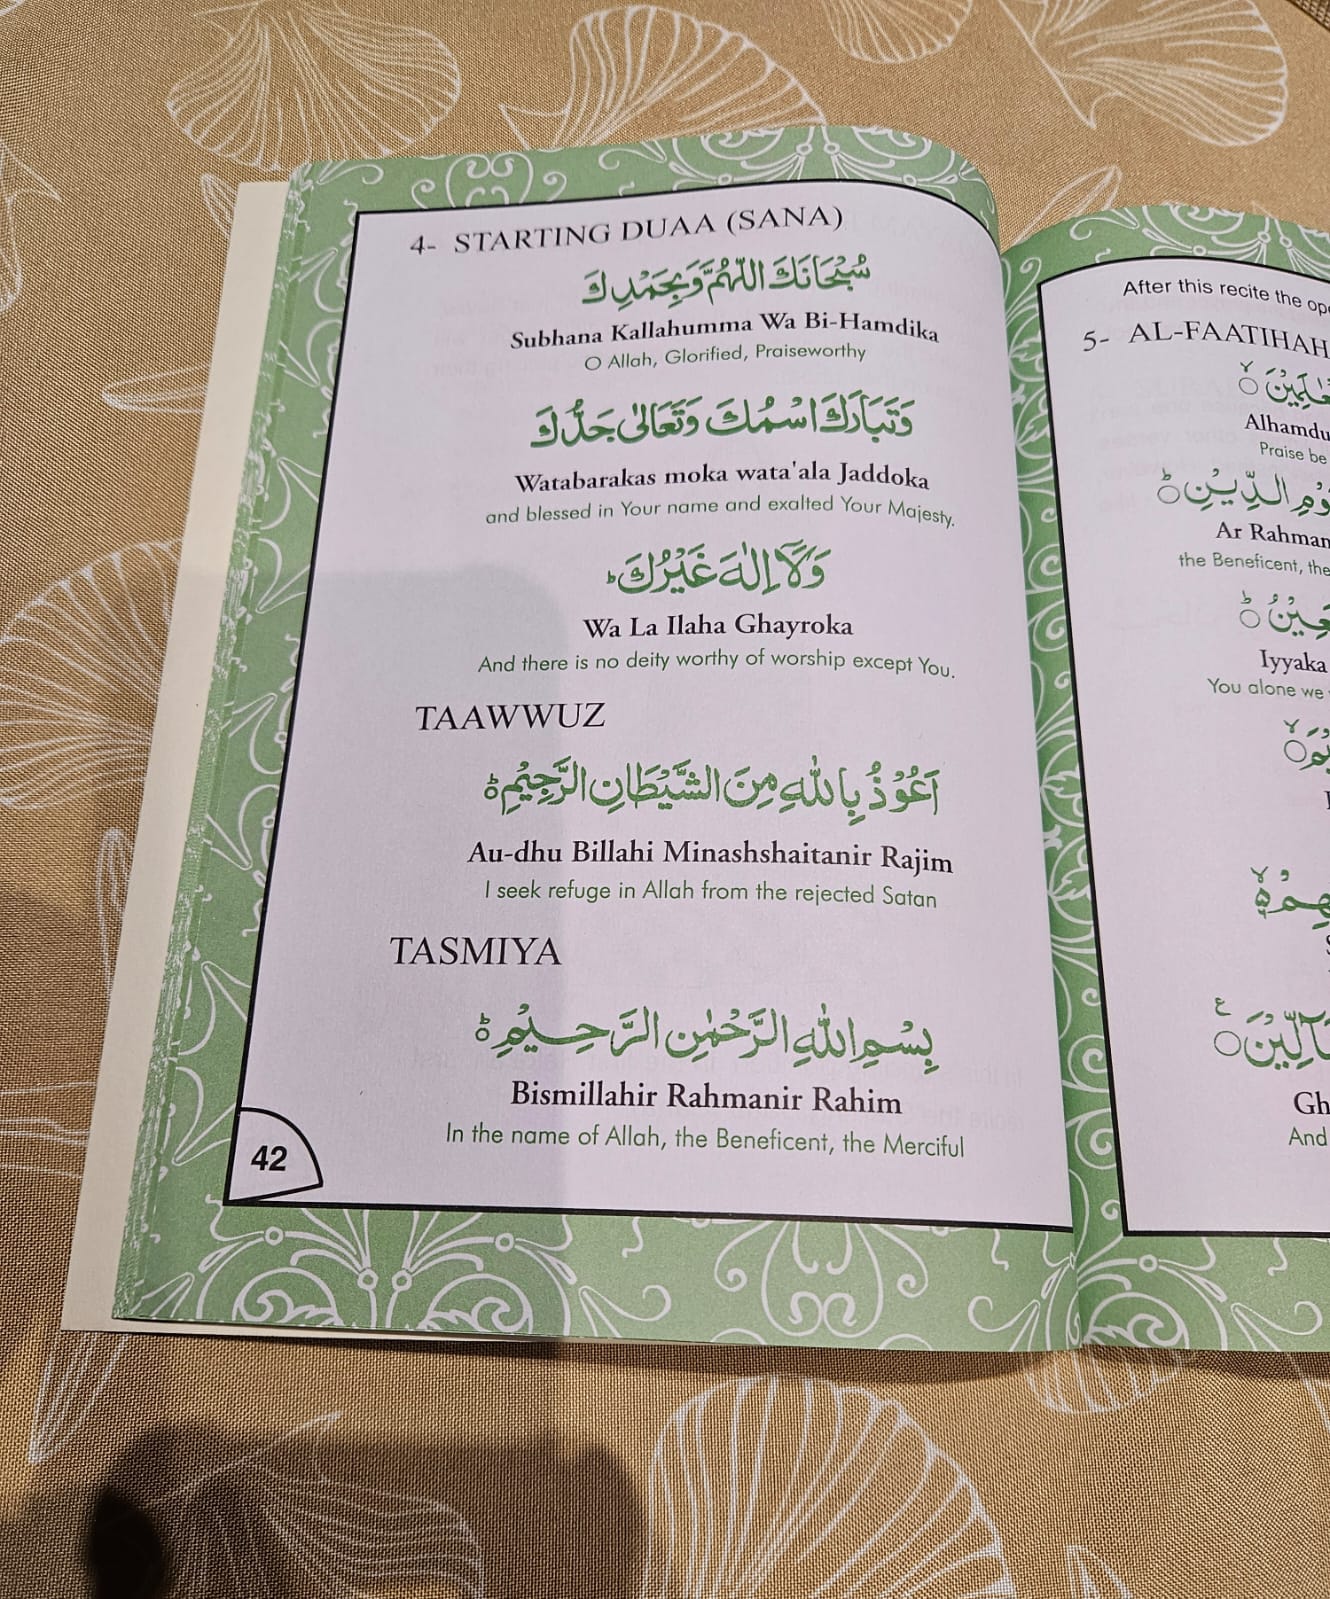 4- STARTING DUAA (SANA)
سُبْحَانَكَ اللّٰهُمَّ وَبِحَمْدِكَ
Subhana Kallahumma Wa Bi-Hamdika
O Allah, Glorified, Praiseworthy
وَتَبَارَكَ اسْمُكَ وَتَعَالٰى جَدُّكَ
Watabarakas moka wata'ala Jaddoka
and blessed in Your name and exalted Your Majesty.
وَلَآ اِلٰهَ غَيْرُكَ ط
Wa La Ilaha Ghayroka
And there is no deity worthy of worship except You.
TAAWWUZ
اَعُوْذُ بِاللّٰهِ مِنَ الشَّيْطَانِ الرَّجِيْمِ ط
Au-dhu Billahi Minashshaitanir Rajim
I seek refuge in Allah from the rejected Satan
TASMIYA
بِسْمِ اللّٰهِ الرَّحْمٰنِ الرَّحِيْمِ ط
Bismillahir Rahmanir Rahim
In the name of Allah, the Beneficent, the Merciful
42
After this recite the
5- AL-FAATIHAH
Praise be
الدِّيْنِ
Ar
the Beneficent, the
Iyyaka
You alone we
And